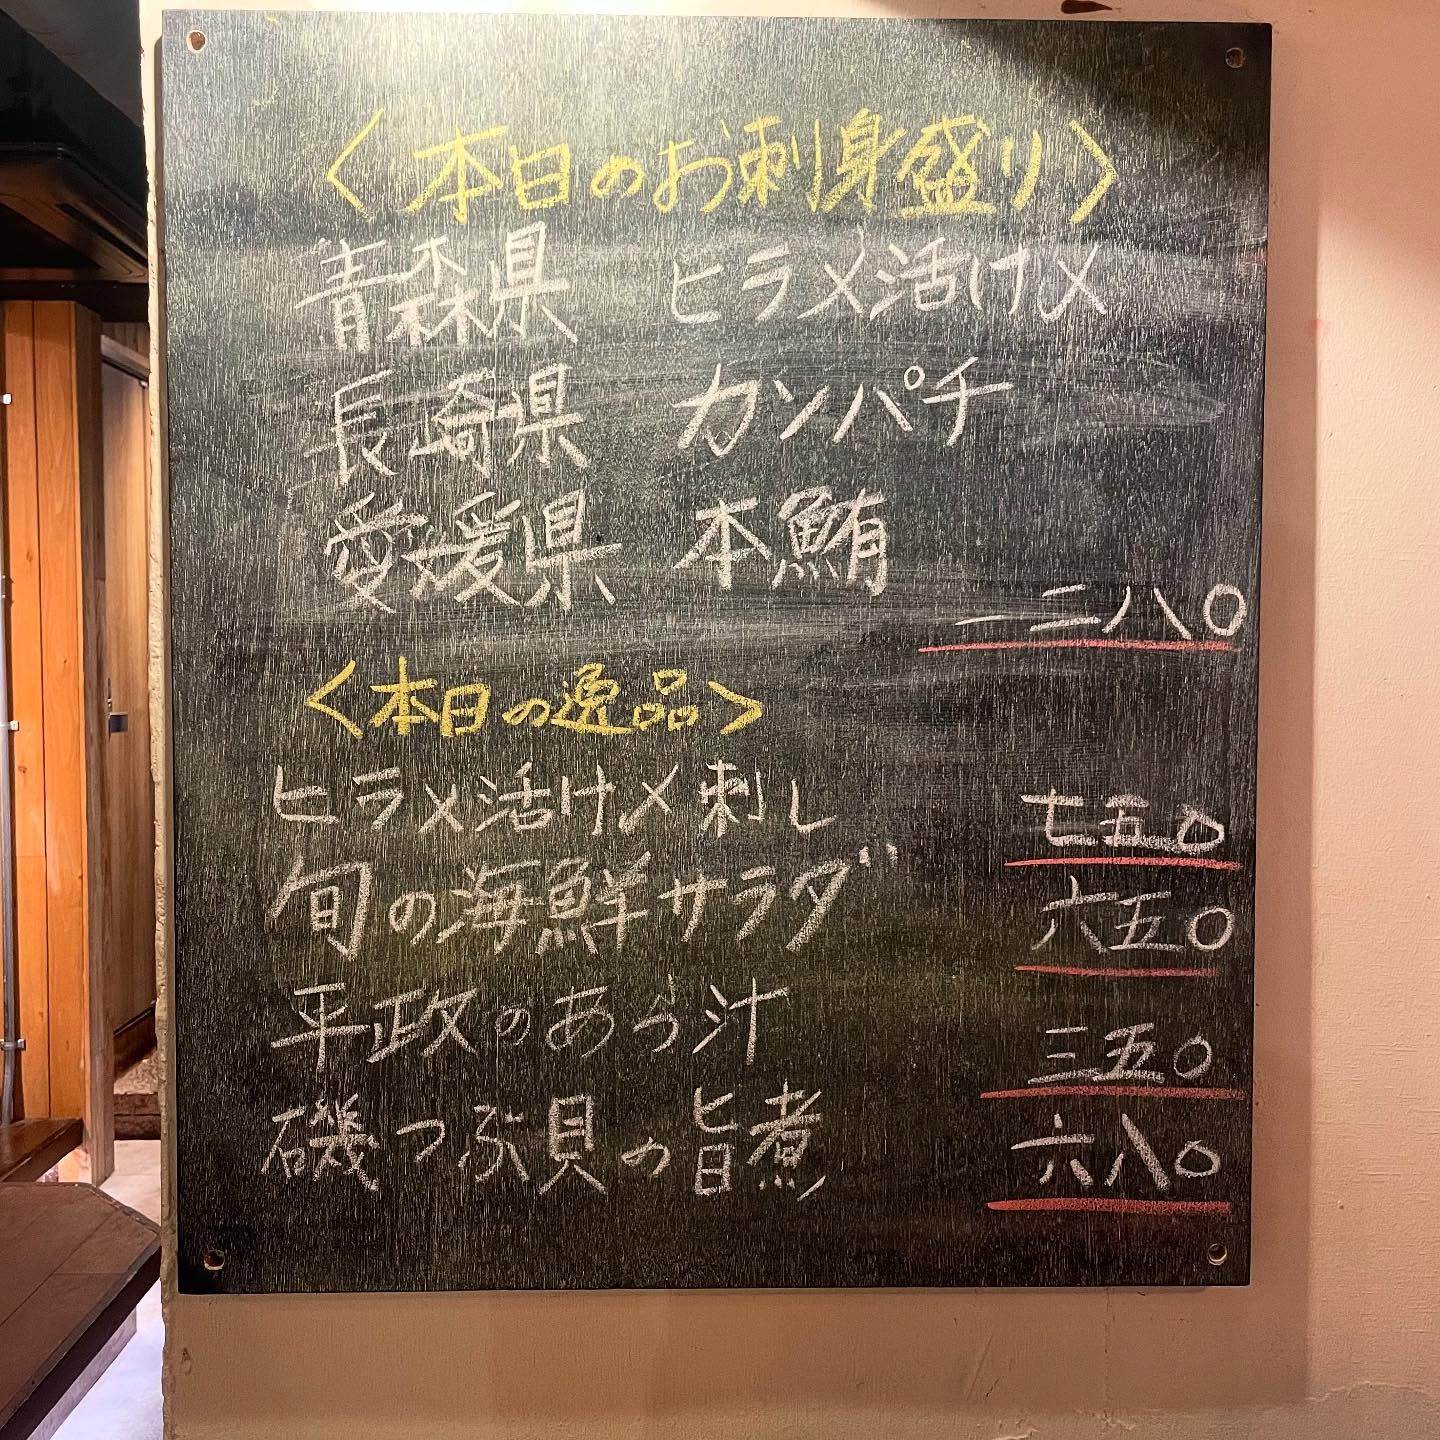 〈本日のお刺身盛り〉
青森県 ヒラメ活け〆
長崎県 カンパチ
愛媛県 本鮪
一二八〇
〈本日の逸品〉
ヒラメ活け〆刺し 七五〇
旬の海鮮サラダ 六五〇
平政のあら汁 三五〇
磯つぶ貝の旨煮 六八〇